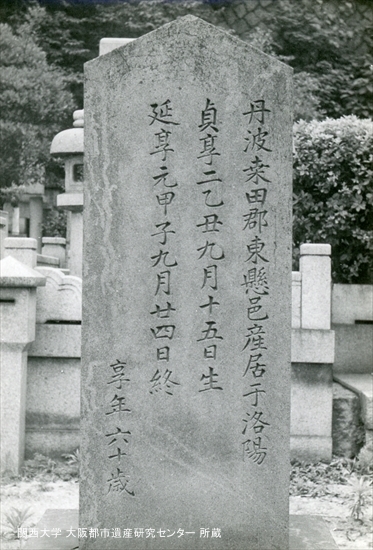 丹波桒田郡東懸邑産居于洛陽
貞享二乙丑九月十五日生
延享元甲子九月廿四日終
享年六十歳
関西大学 大阪都市遺産研究センター 所蔵